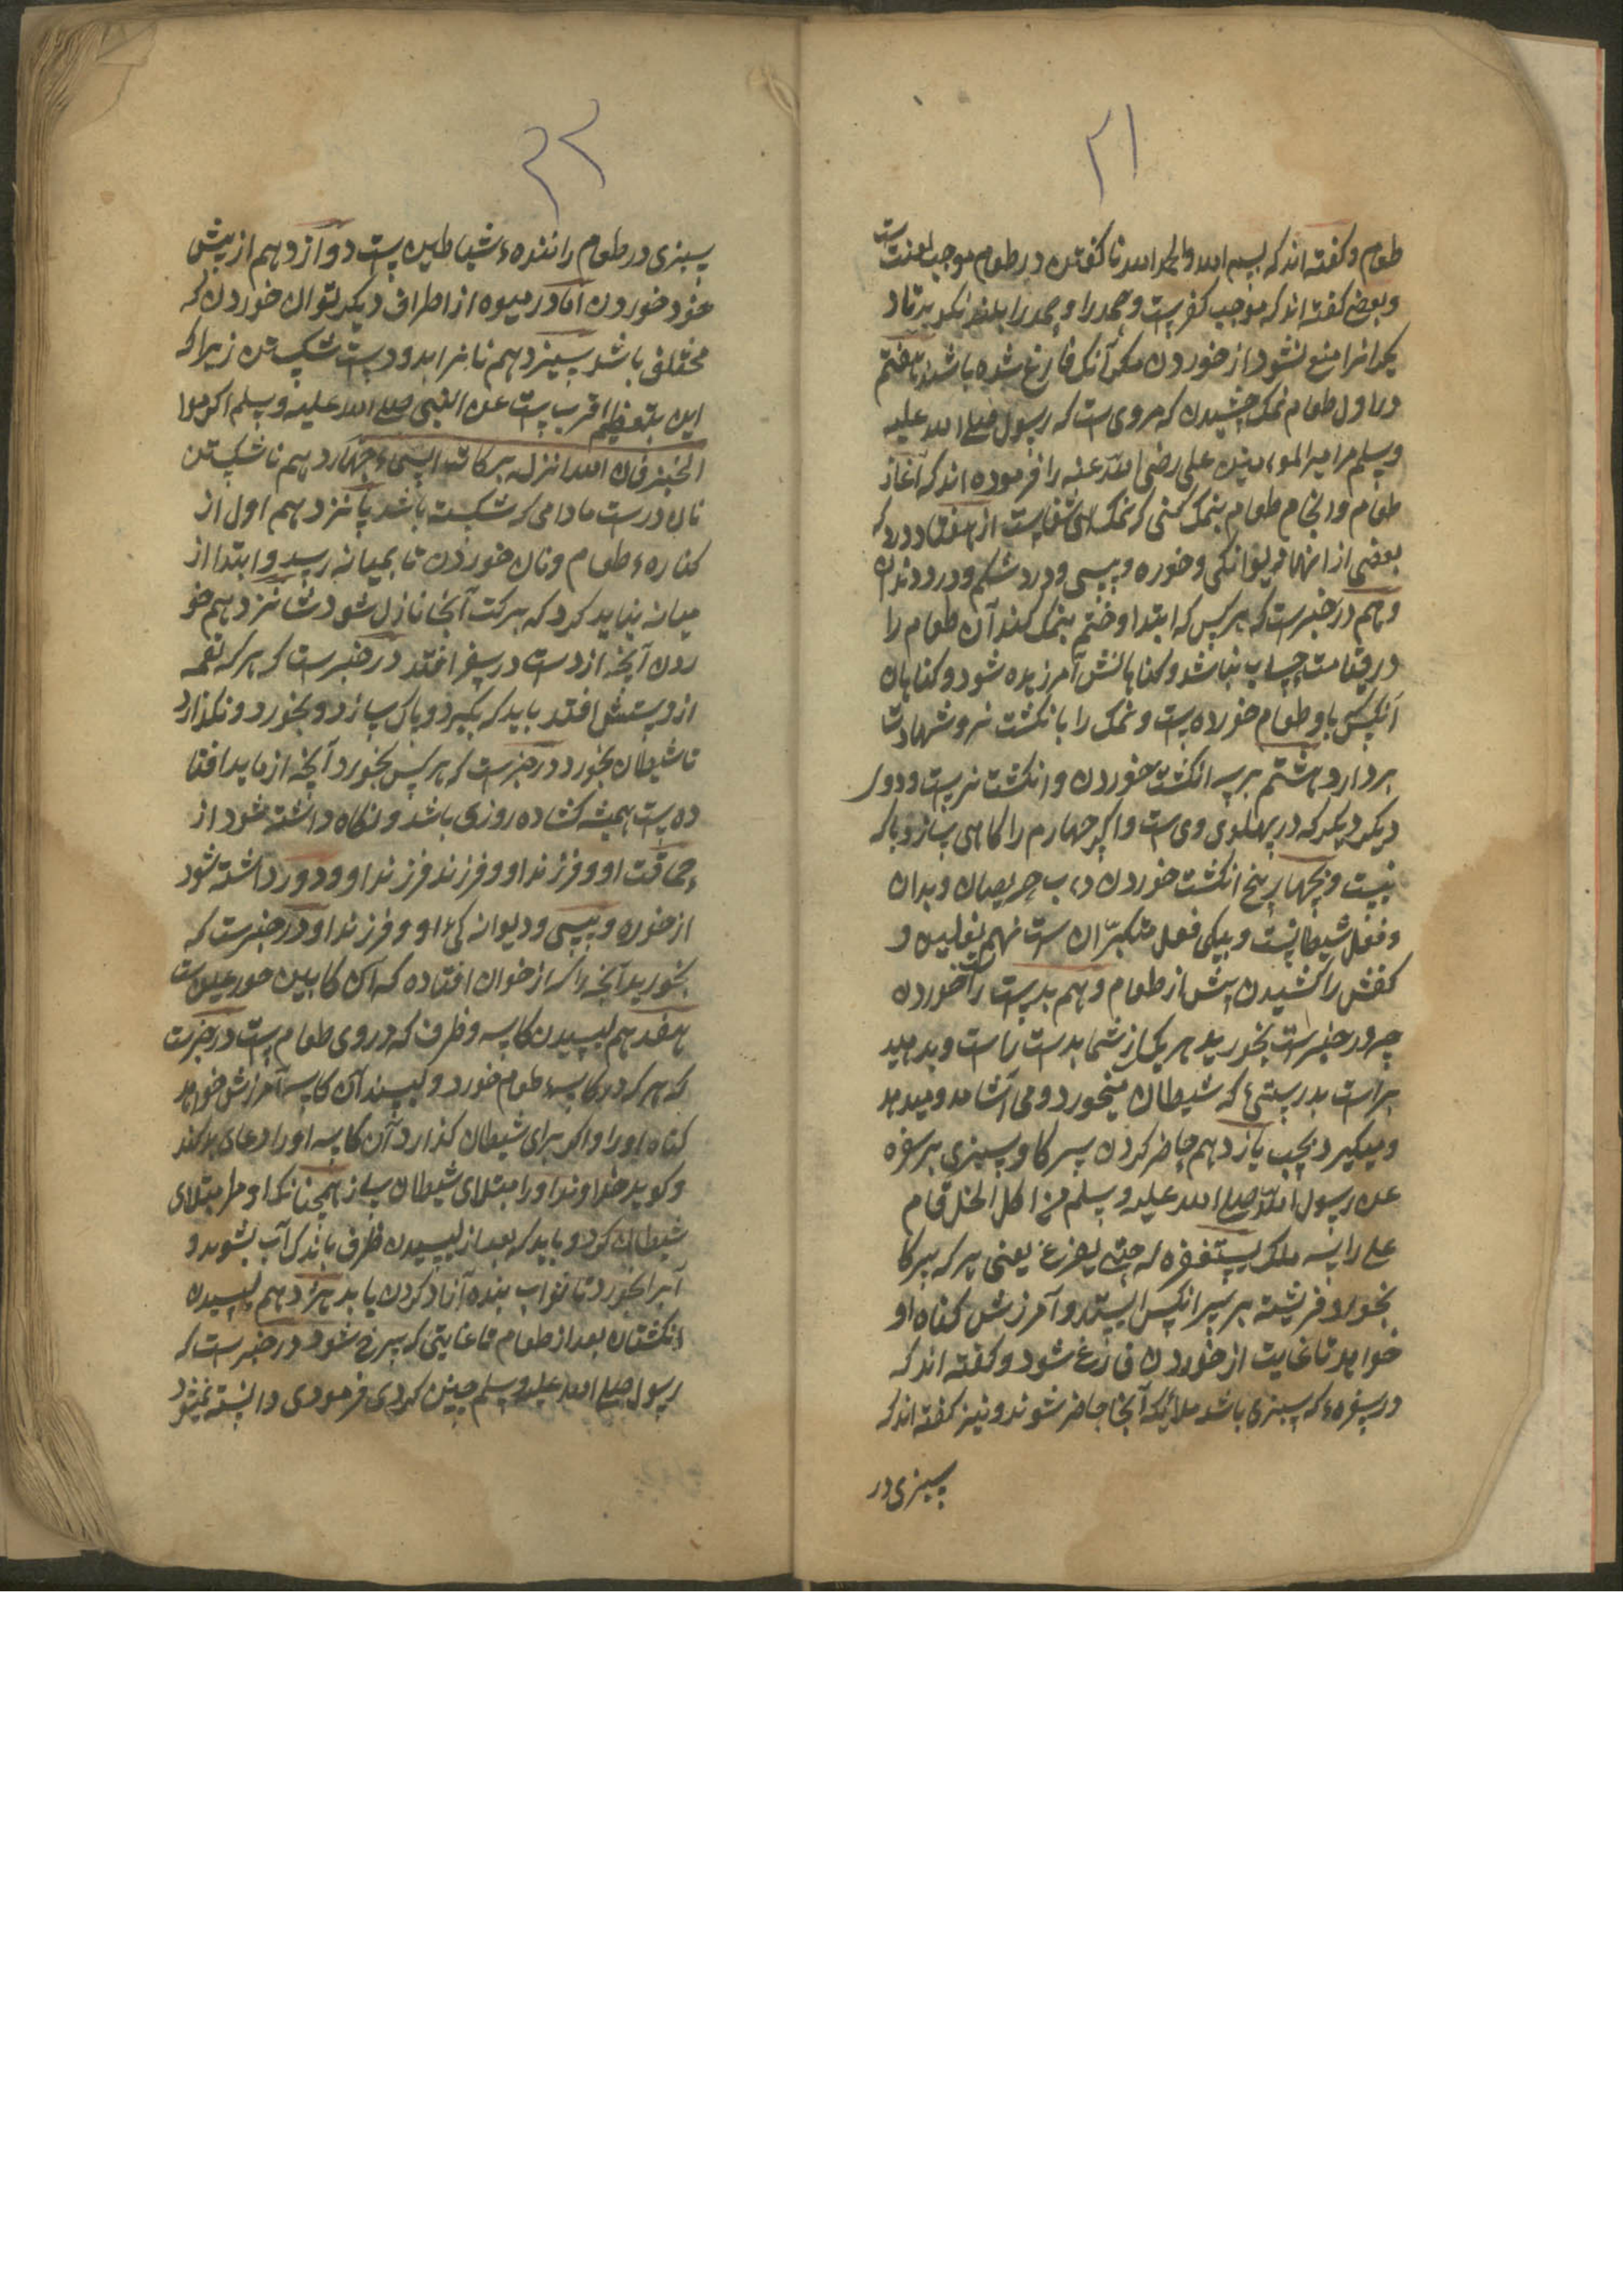 ۲۱
طعام و کفته اند که بسم الله والحمد الله نا کفتن در طعام موجب لعنت است
و بعضی کفته اند که موجب کفر است و حمد را بلند نکوید تا د
یکرانرا منع نشود از خوردن مکر آنک فارغ شده باشند هفتم
در اول طعام نمک چشیدن که مروی است که رسول صلی الله علیه
وسلم مر امیر المومنین علی رضی الله عنه را فرموده اند که آغاز
طعام و انجام طعام بنمک کنی که نمک شفاست از هفتاد درد که
بعضی از انها دیوانکی و خوره و پیسی و درد شکم و درد دندان
و هم در خبرست که هر کس که ابتدا و ختم بنمک کند آن طعام را
در قیامت حساب نباشد و کناهانش آمرزیده شود و کناهان
آنکس باو طعام خورده است و نمک را بانکشت نر و شهادت
بردارد هشتم بسه انکشت خوردن و انکشت نرست و دو
دیکر که در پهلوی وی ست و اکر چهارم را کاهی سازد باک
نیست و بچهار پنج انکشت خوردن حریصان و بدان
و فعل شیطانست و بیکی فعل متکبران ست نهم نعلین و
کفش را کشیدن پیش از طعام دهم بدست راست خوردن
چه در خبرست بخورید هر یک از شما بدست راست و بدهید
براست بدرستی که شیطان میخورد و می آشامد و میدهد
و میکیرد بچپ یازدهم حاضر کردن سرکا و سبزی بر سفره
عن رسول الله صلی الله علیه وسلم من اکل الخل قام
علی راسه ملک یستغفره له حتی یفرغ یعنی هر که سرکا
بخورد فرشته بر سر آنکس ایستد و آمرزش کناه او
خواهد تا غایت از خوردن فارغ شود و کفته اند که
در سفره که سبزی باشد ملائکه آنجا حاضر شوند و نیز کفته اند که
سبزی در
۲۲
سبزی در طعام راننده شیاطین ست دوازدهم از پیش
خود خوردن اما در میوه از اطراف دیکر توان خوردن که
مختلف باشد سیزدهم نانرا بدو دست شکستن زیرا که
این بتعظیم اقرب ست عن النبی صلی الله علیه وسلم اکرموا
الخبز فان الله انزل برکات السماء چهاردهم ناشکستن
نان درست مادامی که شکسته باشد پانزدهم اول از
کناره طعام و نان خوردن تا بمیانه رسد و ابتدا از
میانه نباید کرد که برکت آنجا نازل شود شانزدهم خو
ردن آنچه از دست در سفره افتد در خبرست که هر که لقمه
از دستش افتد باید که بکیرد و پاک سازد و بخورد و نکذارد
تا شیطان بخورد در خبرست که هر کس بخورد آنچه از مایده افتا
ده ست همیشه کشاده روزی باشد و نکاه داشته شود از
حماقت او و فرزند او و فرزند فرزند او و دور داشته شود
از خوره و پیسی و دیوانه کی او و فرزند او در خبرست که
بخورید آنچه را که از خوان افتاده که آن کابین حور عین ست
هفدهم لیسیدن کاسه و ظرف که در وی طعام ست در خبرست
که هر که در کاسه طعام خورد و لیسد آن کاسه آمرزش خواهد
کناه او را و اکر برای شیطان کذارد آن کاسه او را دعای بد کند
و کوید خداوندا او را مبتلای شیطان ساز همچنانکه او مرا مبتلای
شیطان کرد و باید که بعد از لیسیدن ظرف باندک آب بشوید و
آبرا بخورد تا ثواب بنده آزاد کردن یابد هژدهم لیسیدن
انکشتان بعد از طعام تا غایتی که سرخ شود در خبرست که
رسول صلی الله علیه وسلم چنین کردی فرمودی دانسته نمیشود